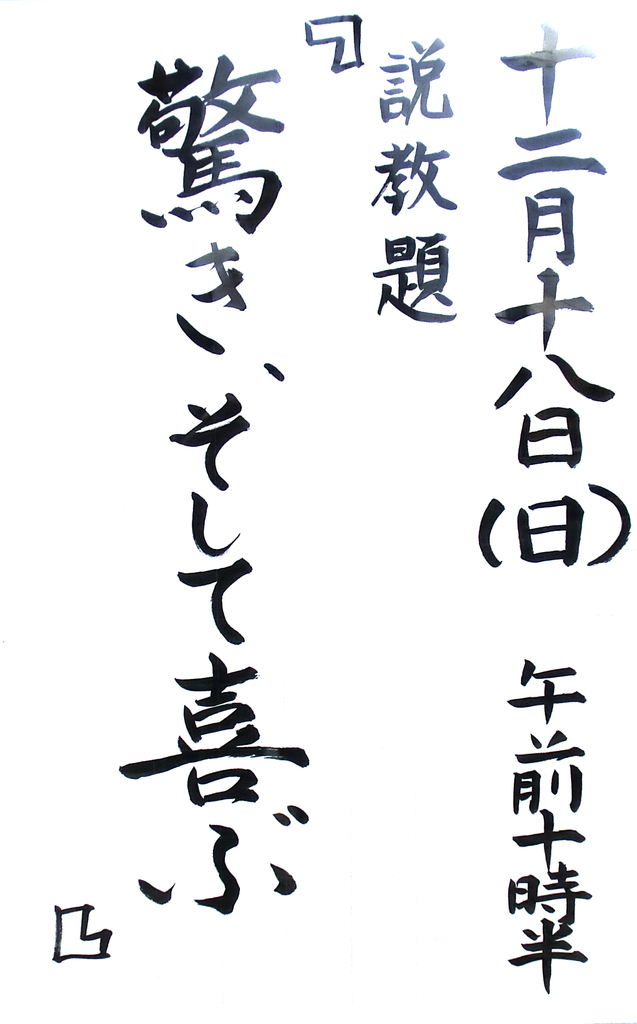 十二月十八日(日) 午前十時半
説教題
『驚き、そして喜ぶ』